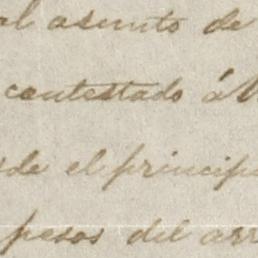 al asunto de
contestado á
de el princip
pesos del arr